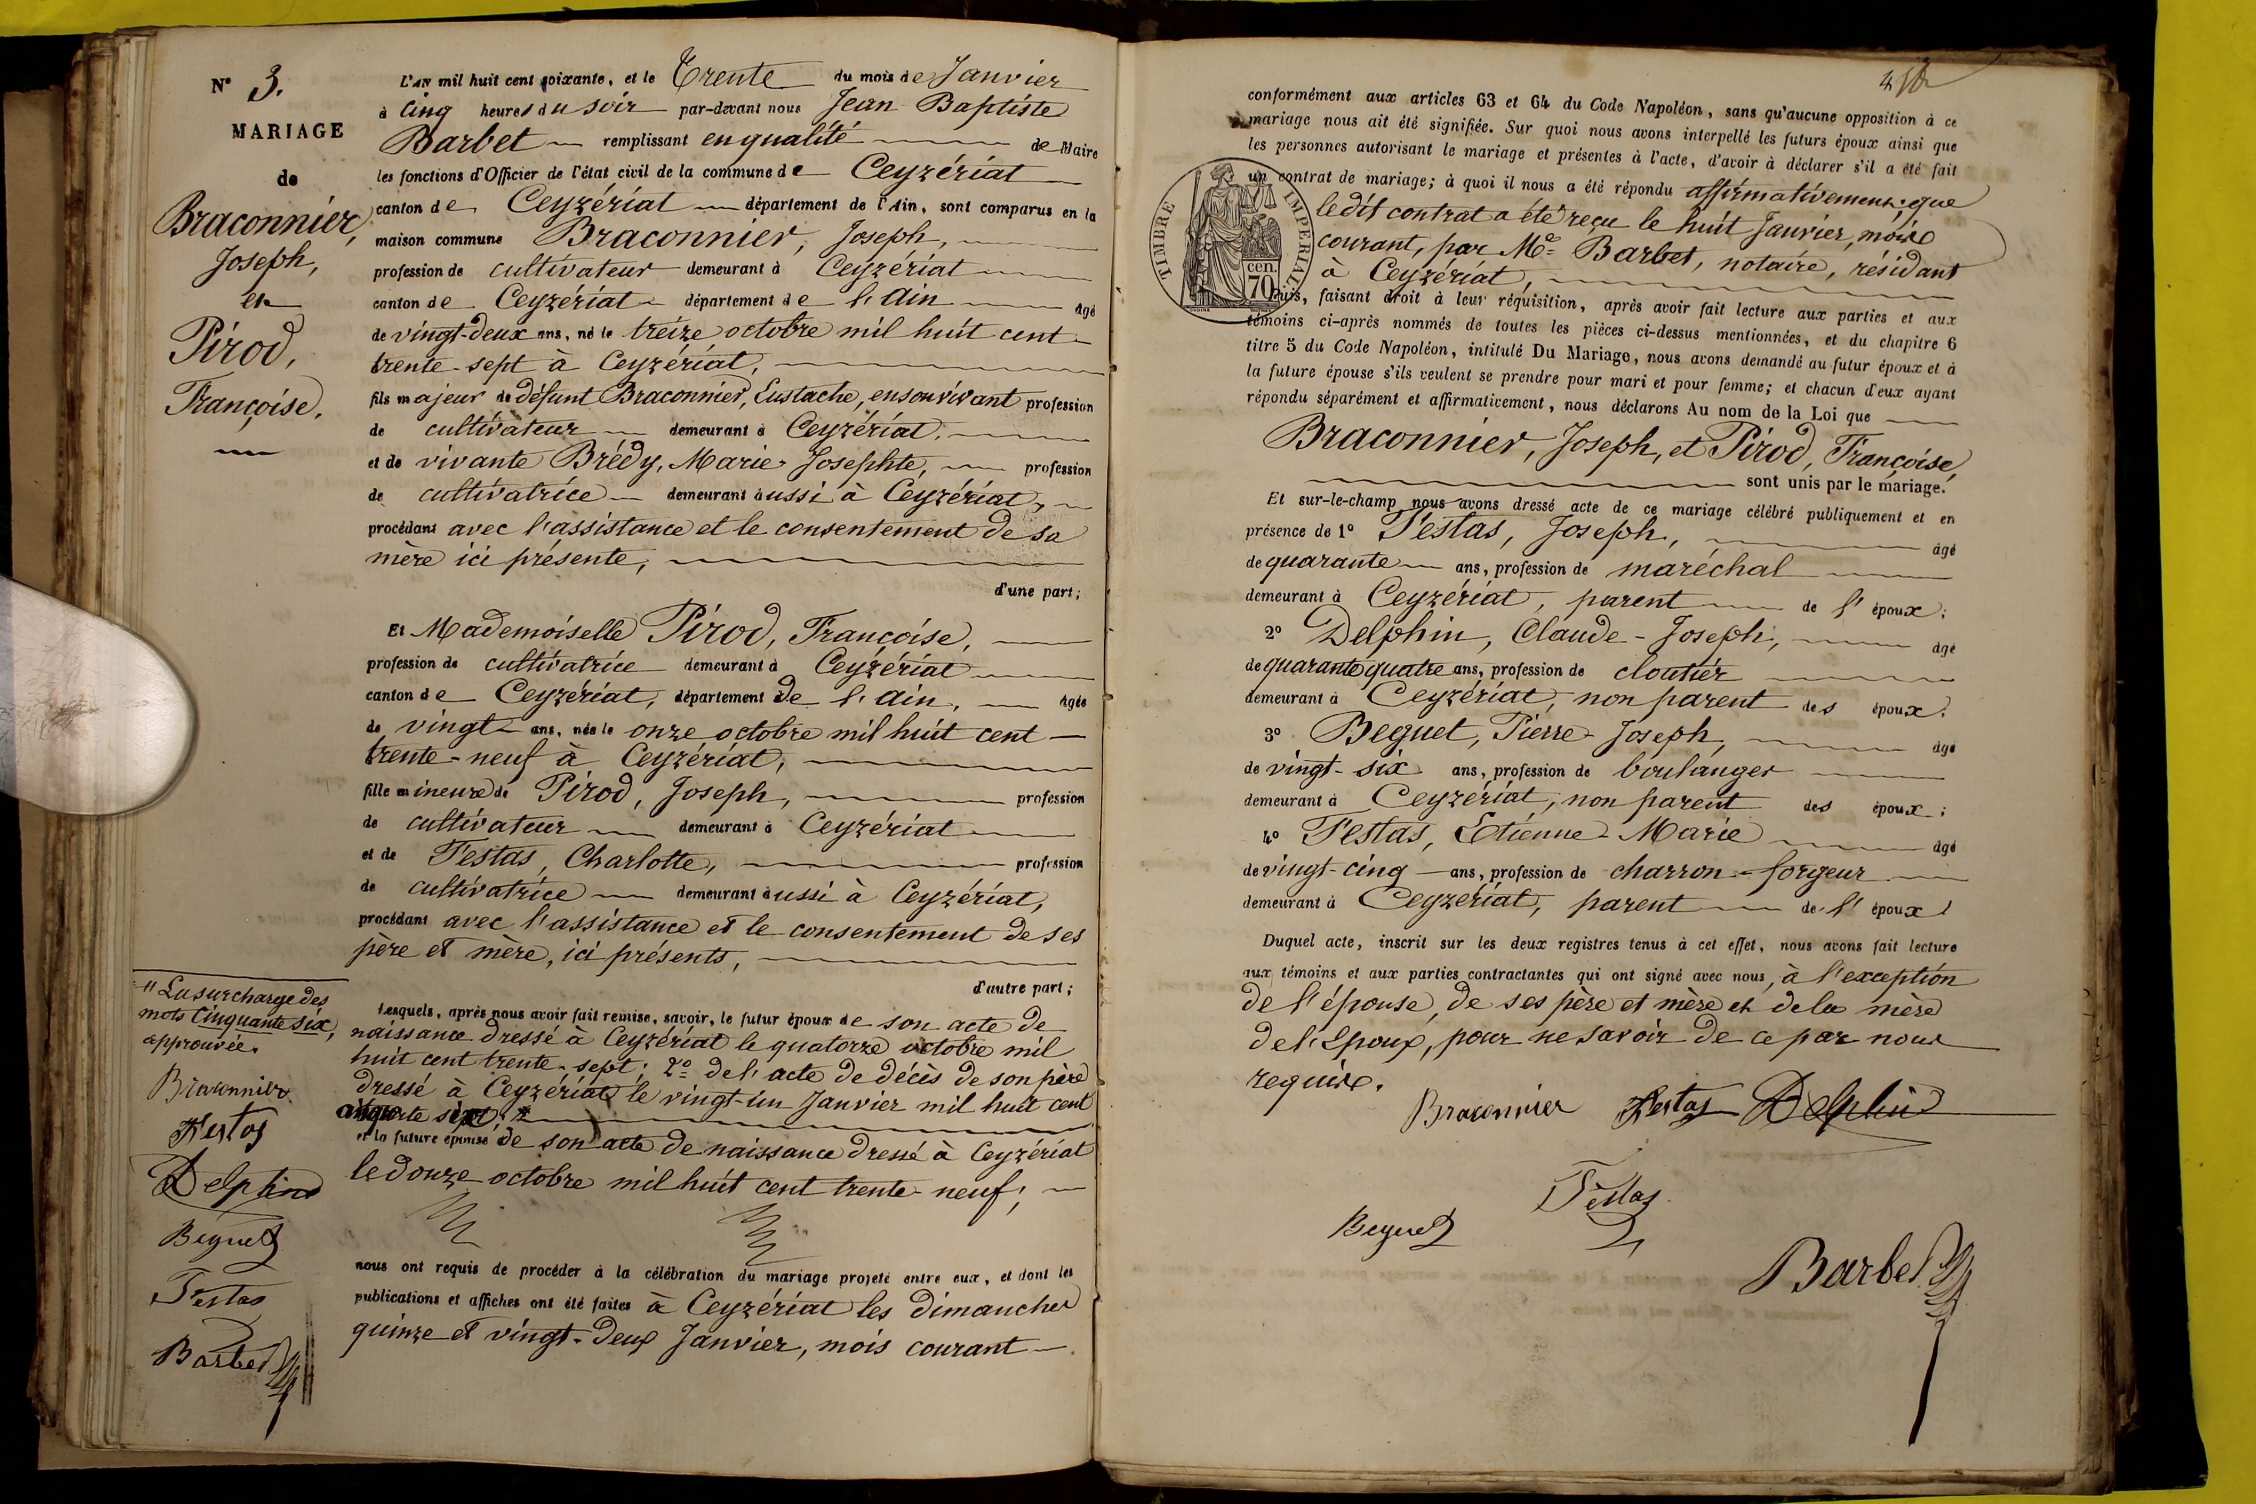 N° 3.
MARIAGE
de
Braconnier,
Joseph,
et
Pirod,
Françoise.
L'AN mil huit cent soixante, et le Trente du mois de Janvier
à cinq heures du soir par-devant nous Jean Baptiste
Barbet remplissant en qualité de Maire
les fonctions d'Officier de l'état civil de la commune de Ceyzériat
canton de Ceyzériat département de l'Ain, sont comparus en la
maison commune Braconnier, Joseph,
profession de cultivateur demeurant à Ceyzériat
canton de Ceyzériat département de l'Ain âgé
de vingt-deux ans, né le treize octobre mil huit cent
trente-sept à Ceyzériat,
fils majeur de défunt Braconnier, Eustache, en son vivant profession
de cultivateur demeurant à Ceyzériat,
et de vivante Brédy, Marie-Josephte, profession
de cultivatrice demeurant aussi à Ceyzériat,
procédant avec l'assistance et le consentement de sa
mère ici présente,
d'une part;
Et Mademoiselle Pirod, Françoise,
profession de cultivatrice demeurant à Ceyzériat
canton de Ceyzériat, département de l'Ain, âgée
de vingt ans, née le onze octobre mil huit cent
trente-neuf à Ceyzériat,
fille mineure de Pirod, Joseph, profession
de cultivateur demeurant à Ceyzériat
et de Festas, Charlotte, profession
de cultivatrice demeurant aussi à Ceyzériat,
procédant avec l'assistance et le consentement de ses
père et mère, ici présents,
d'autre part;
Lesquels, après nous avoir fait remise, savoir, le futur époux de son acte de
naissance dressé à Ceyzériat le quatorze octobre mil
huit cent trente-sept; 2° de l'acte de décès de son père
dressé à Ceyzériat le vingt-un Janvier mil huit cent
cinquante six;
et la future épouse de son acte de naissance dressé à Ceyzériat
le douze octobre mil huit cent trente-neuf;
nous ont requis de procéder à la célébration du mariage projeté entre eux, et dont les
publications et affiches ont été faites à Ceyzériat les dimanches
quinze et vingt-deux Janvier, mois courant
"La surcharge des
mots cinquante six,
approuvée.
Braconnier
Festas
Delphin
Beguet
Festas
Barbet
conformément aux articles 63 et 64 du Code Napoléon, sans qu'aucune opposition à ce
mariage nous ait été signifiée. Sur quoi nous avons interpellé les futurs époux ainsi que
les personnes autorisant le mariage et présentes à l'acte, d'avoir à déclarer s'il a été fait
un contrat de mariage; à quoi il nous a été répondu affirmativement que
ledit contrat a été reçu le huit Janvier, mois
courant, par Me Barbet, notaire, résidant
à Ceyzériat,
TIMBRE IMPERIAL
70 cen.
Puis, faisant droit à leur réquisition, après avoir fait lecture aux parties et aux
témoins ci-après nommés de toutes les pièces ci-dessus mentionnées, et du chapitre 6
titre 5 du Code Napoléon, intitulé Du Mariage, nous avons demandé au futur époux et à
la future épouse s'ils veulent se prendre pour mari et pour femme; et chacun d'eux ayant
répondu séparément et affirmativement, nous déclarons Au nom de la Loi que
Braconnier, Joseph, et Pirod, Françoise,
sont unis par le mariage.
Et sur-le-champ nous avons dressé acte de ce mariage célébré publiquement et en
présence de 1° Festas, Joseph, âgé
de quarante ans, profession de maréchal
demeurant à Ceyzériat, parent de l'époux;
2° Delphin, Claude-Joseph, âgé
de quarante quatre ans, profession de cloutier
demeurant à Ceyzériat, non parent des époux;
3° Beguet, Pierre-Joseph, âgé
de vingt-six ans, profession de boulanger
demeurant à Ceyzériat, non parent des époux;
4° Festas, Etienne-Marie âgé
de vingt-cinq ans, profession de charron-forgeur
demeurant à Ceyzériat, parent de l'époux
Duquel acte, inscrit sur les deux registres tenus à cet effet, nous avons fait lecture
aux témoins et aux parties contractantes qui ont signé avec nous, à l'exception
de l'épouse, de ses père et mère et de la mère
de l'Epoux, pour ne savoir de ce par nous
requis.
Braconnier Festas Delphin
Festas
Beguet
Barbet